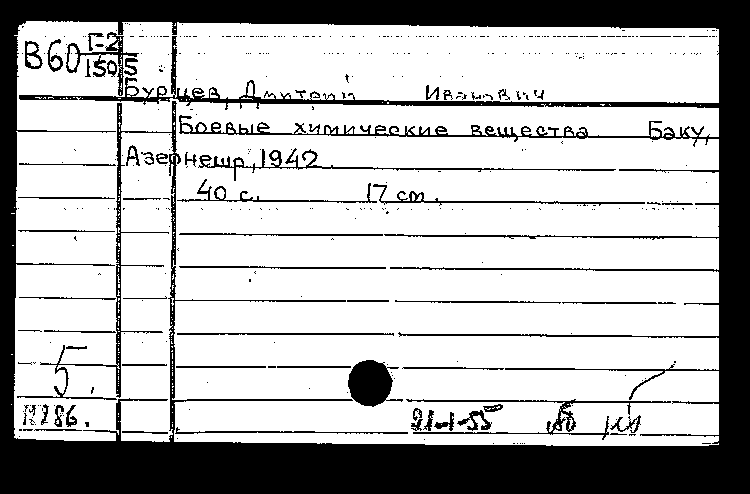 В60 Г-2
150
5
Бурцев, Дмитрий Иванович
Боевые химические вещества Баку,
Азернешр, 1942.
40 с. 17 см.
5.
М286.
21-1-55